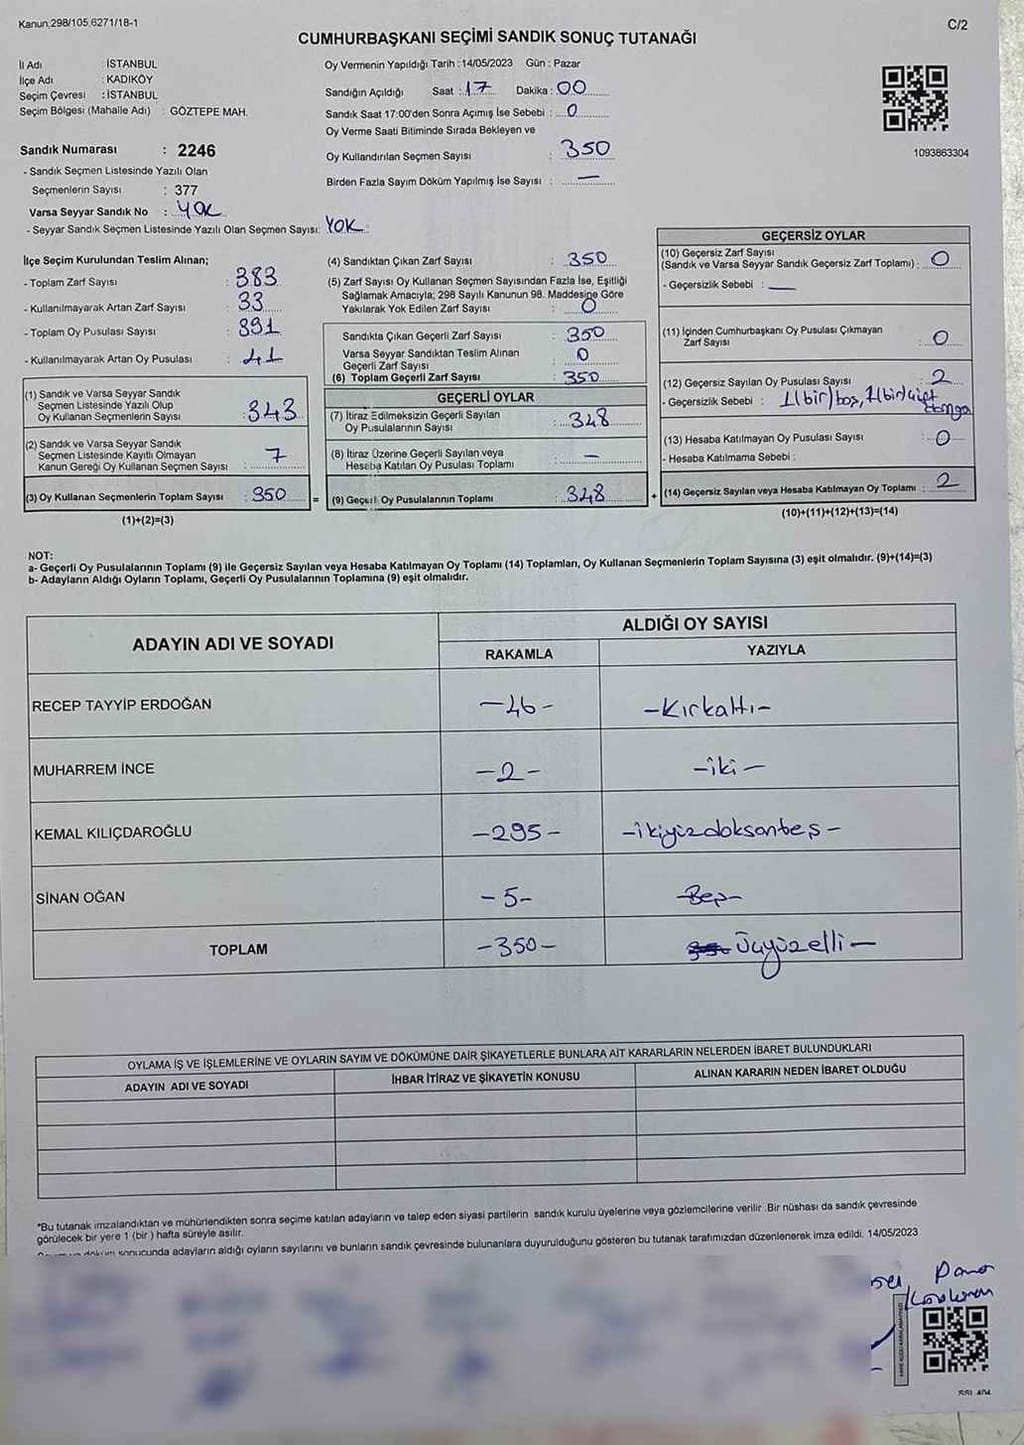 Kanun,298/105,6271/18-1
C/2
CUMHURBAŞKANI SEÇİMİ SANDIK SONUÇ TUTANAĞI
İl Adı : İSTANBUL
İlçe Adı : KADIKÖY
Seçim Çevresi : İSTANBUL
Seçim Bölgesi (Mahalle Adı) : GÖZTEPE MAH.
Sandık Numarası : 2246
- Sandık Seçmen Listesinde Yazılı Olan
Seçmenlerin Sayısı : 377
Varsa Seyyar Sandık No : YOK
- Seyyar Sandık Seçmen Listesinde Yazılı Olan Seçmen Sayısı: YOK
Oy Vermenin Yapıldığı Tarih : 14/05/2023 Gün : Pazar
Sandığın Açıldığı Saat : 17 Dakika : 00
Sandık Saat 17:00'den Sonra Açımış İse Sebebi : 0
Oy Verme Saati Bitiminde Sırada Bekleyen ve
Oy Kullandırılan Seçmen Sayısı : 350
Birden Fazla Sayım Döküm Yapılmış İse Sayısı : —
1093863304
İlçe Seçim Kurulundan Teslim Alınan;
- Toplam Zarf Sayısı : 383
- Kullanılmayarak Artan Zarf Sayısı : 33
- Toplam Oy Pusulası Sayısı : 391
- Kullanılmayarak Artan Oy Pusulası : 41
(1) Sandık ve Varsa Seyyar Sandık
Seçmen Listesinde Yazılı Olup
Oy Kullanan Seçmenlerin Sayısı : 343
(2) Sandık ve Varsa Seyyar Sandık
Seçmen Listesinde Kayıtlı Olmayan
Kanun Gereği Oy Kullanan Seçmen Sayısı : 7
(3) Oy Kullanan Seçmenlerin Toplam Sayısı : 350
(1)+(2)=(3)
(4) Sandıktan Çıkan Zarf Sayısı : 350
(5) Zarf Sayısı Oy Kullanan Seçmen Sayısından Fazla İse, Eşitliği
Sağlamak Amacıyla; 298 Sayılı Kanunun 98. Maddesine Göre
Yakılarak Yok Edilen Zarf Sayısı : 0
Sandıkta Çıkan Geçerli Zarf Sayısı : 350
Varsa Seyyar Sandıktan Teslim Alınan
Geçerli Zarf Sayısı : 0
(6) Toplam Geçerli Zarf Sayısı : 350
GEÇERLİ OYLAR
(7) İtiraz Edilmeksizin Geçerli Sayılan
Oy Pusulalarının Sayısı : 348
(8) İtiraz Üzerine Geçerli Sayılan veya
Hesaba Katılan Oy Pusulası Toplamı : —
= (9) Geçerli Oy Pusulalarının Toplamı : 348
GEÇERSİZ OYLAR
(10) Geçersiz Zarf Sayısı
(Sandık ve Varsa Seyyar Sandık Geçersiz Zarf Toplamı) : 0
- Geçersizlik Sebebi : —
(11) İçinden Cumhurbaşkanı Oy Pusulası Çıkmayan
Zarf Sayısı : 0
(12) Geçersiz Sayılan Oy Pusulası Sayısı : 2
- Geçersizlik Sebebi : 1(bir)boş, 1(bir)çift
damga
(13) Hesaba Katılmayan Oy Pusulası Sayısı : 0
- Hesaba Katılmama Sebebi :
+ (14) Geçersiz Sayılan veya Hesaba Katılmayan Oy Toplamı : 2
(10)+(11)+(12)+(13)=(14)
NOT:
a- Geçerli Oy Pusulalarının Toplamı (9) ile Geçersiz Sayılan veya Hesaba Katılmayan Oy Toplamı (14) Toplamları, Oy Kullanan Seçmenlerin Toplam Sayısına (3) eşit olmalıdır. (9)+(14)=(3)
b- Adayların Aldığı Oyların Toplamı, Geçerli Oy Pusulalarının Toplamına (9) eşit olmalıdır.
ADAYIN ADI VE SOYADI
ALDIĞI OY SAYISI
RAKAMLA YAZIYLA
RECEP TAYYİP ERDOĞAN -46- -Kırkaltı-
MUHARREM İNCE -2- -iki-
KEMAL KILIÇDAROĞLU -295- -ikiyüzdoksanbeş-
SİNAN OĞAN -5- -Beş-
TOPLAM -350- Üçyüzelli-
OYLAMA İŞ VE İŞLEMLERİNE VE OYLARIN SAYIM VE DÖKÜMÜNE DAİR ŞİKAYETLERLE BUNLARA AİT KARARLARIN NELERDEN İBARET BULUNDUKLARI
ADAYIN ADI VE SOYADI İHBAR İTİRAZ VE ŞİKAYETİN KONUSU ALINAN KARARIN NEDEN İBARET OLDUĞU
*Bu tutanak imzalandıktan ve mühürlendikten sonra seçime katılan adayların ve talep eden siyasi partilerin sandık kurulu üyelerine veya gözlemcilerine verilir .Bir nüshası da sandık çevresinde
görülecek bir yere 1 (bir ) hafta süreyle asılır.
sonucunda adayların aldığı oyların sayılarını ve bunların sandık çevresinde bulunanlara duyurulduğunu gösteren bu tutanak tarafımızdan düzenlenerek imza edildi. 14/05/2023